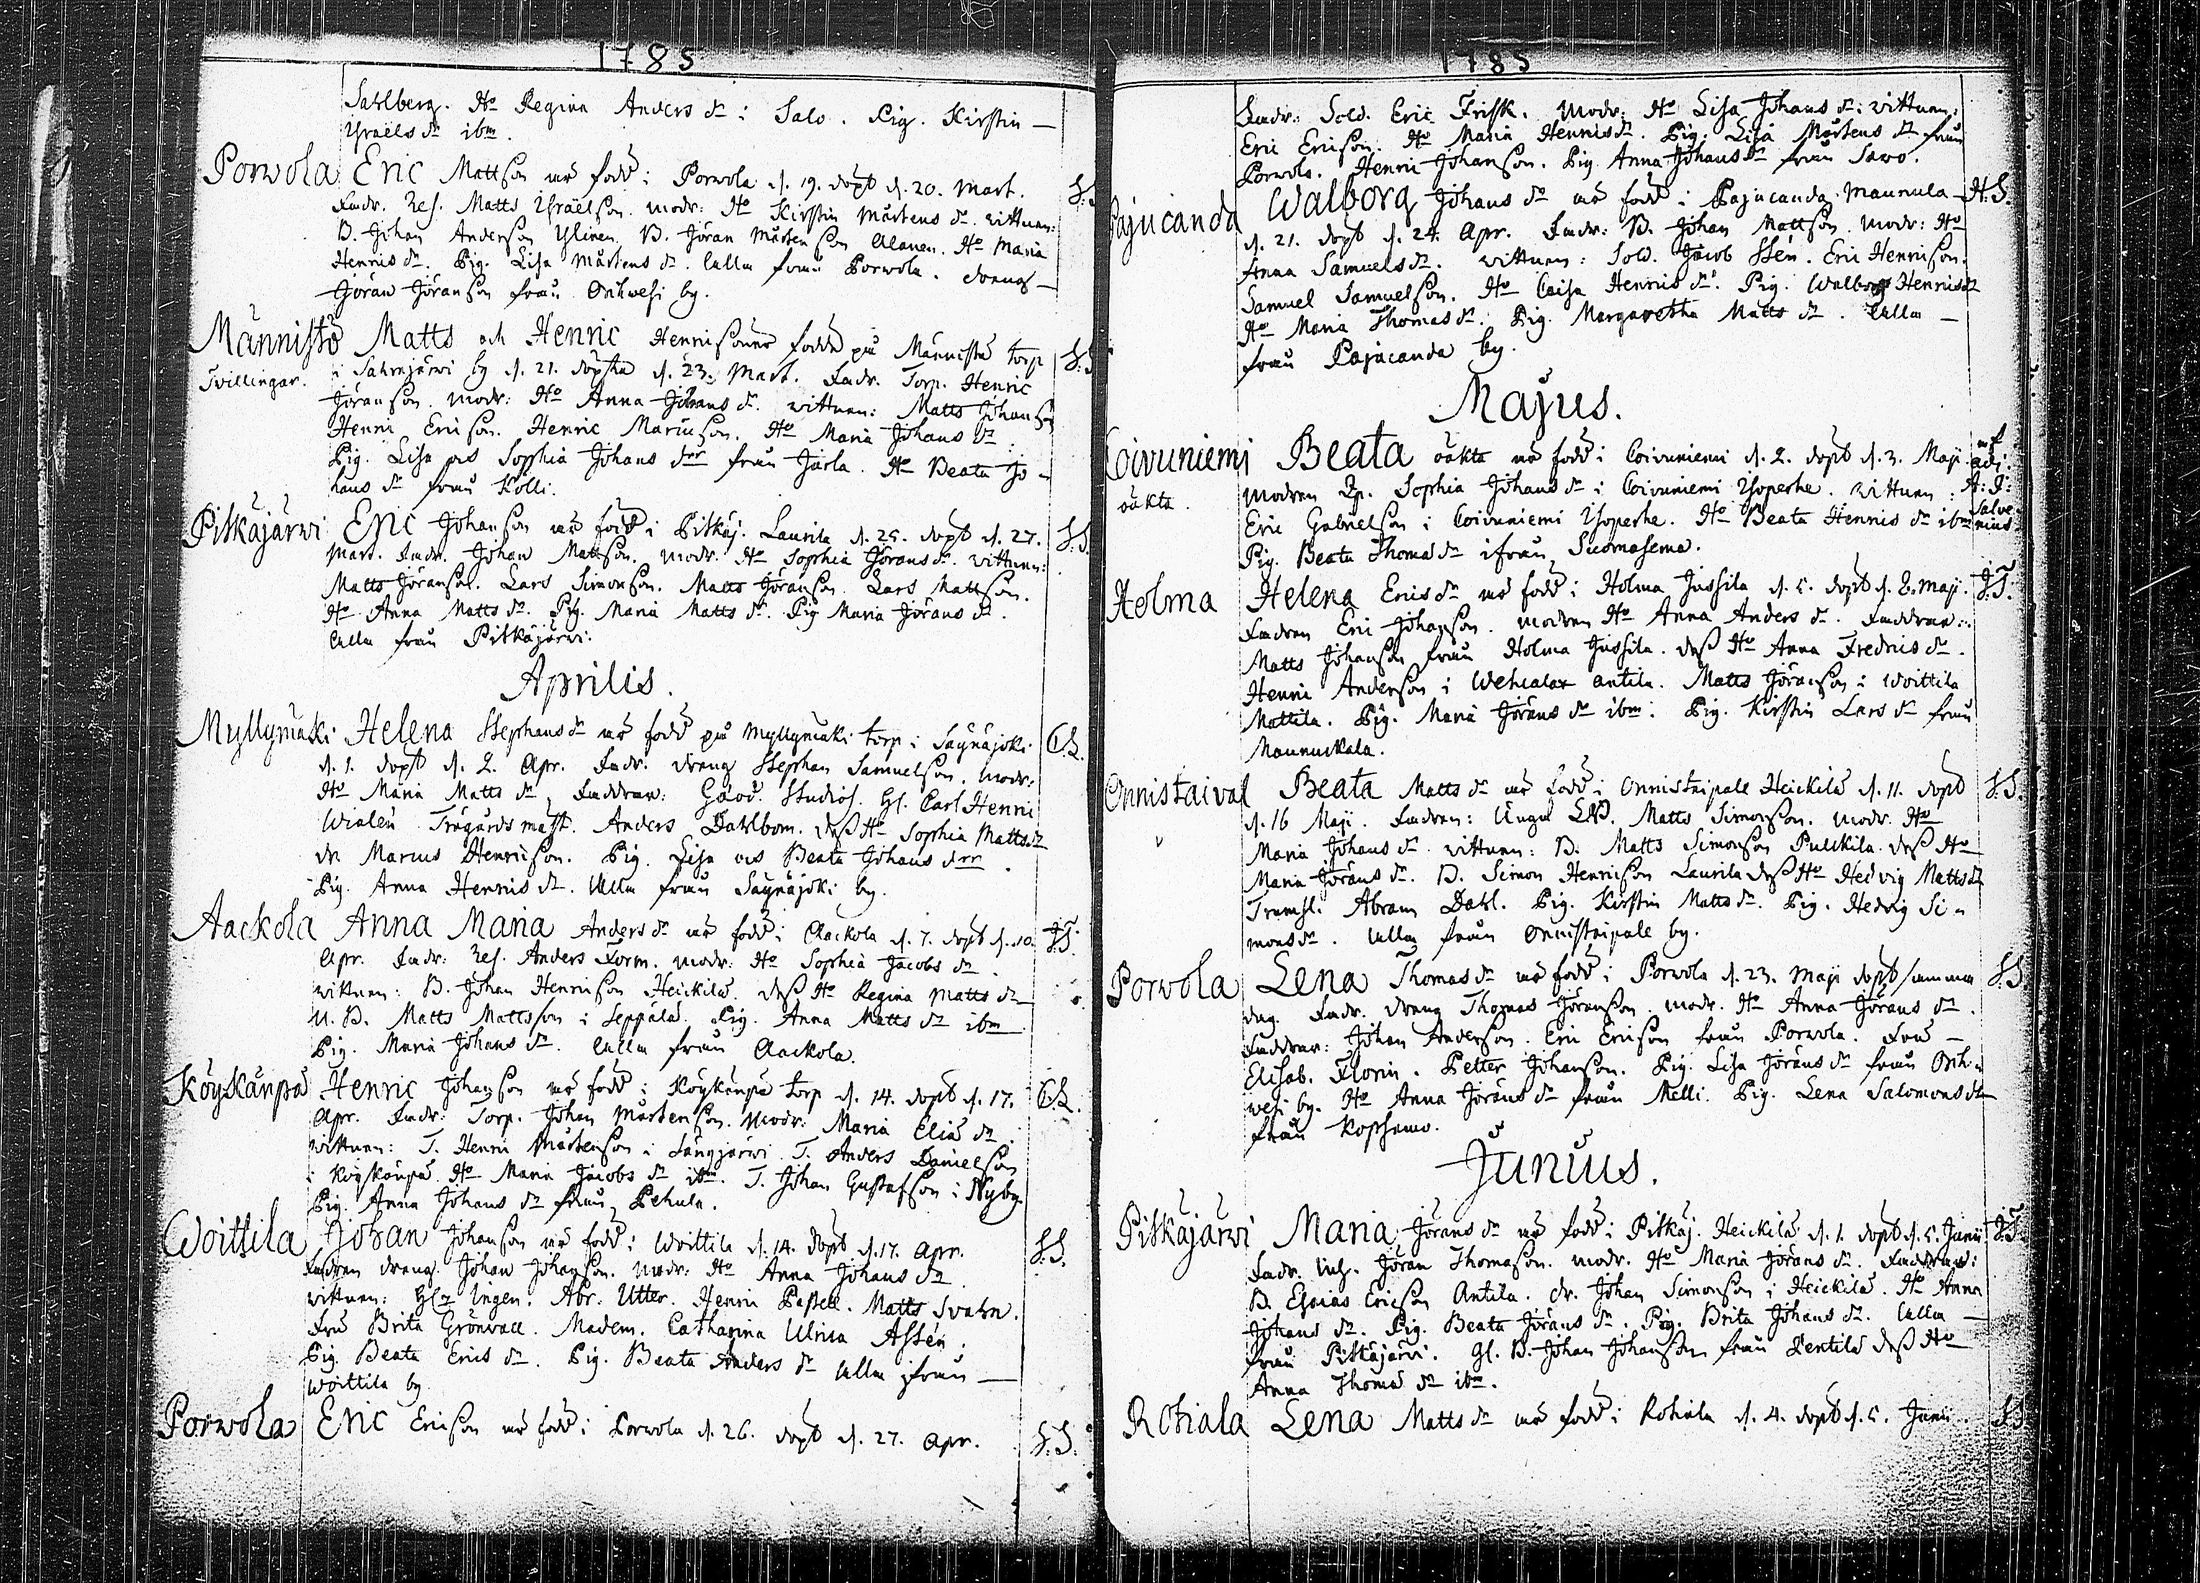 1785
Sahlberg. Ho Regina Anders dr i Salo. Pig. Kirstin
Ysraëls dr ibm.
Porvola Eric Mattson är född i Porvola d. 19. döpt d. 20. Mart. S:S
Fadr. Res. Matts Ysraëlson. modr: Ho Kirstin Mårtens dr. vittnen:
B. Johan Anderson Ylinen. B. Jöran Mårtenson Alanen. Ho Maria
Henrics dr. Pig. Lisa Mårtens dr. alla från Porvola. Dreng
Jöran Jöranson från Orihvesi by.
Männistö Matts och Henric Henricsöner födde på Männistö torp S:S
Tvillingar. i Sahrajärwi by d. 21. döpta d. 23. Mart. Fadr. Torp. Henric
Jöranson. modr: Ho Anna Johans dr. vittnen: Matts Johanson
Henric Ericson. Henric Maricson. Ho Maria Johans dr.
Pig. Lisa och Sophia Johans drr från Järla. Ho Beata Jo-
hans dr från Kolli.
Pitkäjärwi Eric Johanson är född i Pitkäj. Laurila d. 25. döpt d. 27. S:S.
Mart. Fadr. Johan Mattson. modr. Ho Sophia Jörans dr. vittnen:
Matts Jöranson. Lars Simonson. Matts Jöranson. Lars Mattson.
Ho Anna Matts dr. Pig. Maria Matts dr. Pig Maria Jörans dr.
alla från Pitkäjärwi.
Aprilis.
Myllymäki Helena Stephans dr är född på Myllymäki torp i Säynäjoki
d. 1. döpt d. 2. Apr. Fadr. dreng Stephan Samuelson. modr:
Ho Maria Matts dr. Faddrar: Studios. Hl. Carl Henric
Trägårdsmäst. Anders Dahlbom. dess Ho Sophia Matts dr
dr. Marcus Henricson. Pig. Lisa och Beata Johans drr.
Pig. Anna Henrics dr. Alla från Säynäjoki by.
Aackola Anna Maria Anders dr är född i Aackola d. 7. döpt d. 10. J.T.
Apr. Fadr: Res. Anders Form. modr: Ho Sophia Jacobs dr.
vittnen: B. Johan Henricson Heickilä. dess Ho Regina Matts dr
U. B. Matts Mattsson i Seppälä. Pig. Anna Matts dr ibm
Pig. Maria Johans dr. alla från Aackola.
Köykänpä Henric Johanson är född i Köykänpä torp d. 14. döpt d. 17.
Apr. Fadr: Torp. Johan Mårtenson. modr: Maria Eliæ dr.
vittnen: T. Henric Mårtenson i Långjärwi. T. Anders Danielson
i Köykänpä. Ho Maria Jacobs dr ibm. T. Johan Gustafson i Nyby
Pig. Anna Johans dr från Pekula.
Woittila Johan Johanson är född i Woittila d. 14. döpt d. 17. Apr. S:S.
Fadren dreng Johan Johanson. modr: Ho Anna Johans dr.
vittnen: Hl Ingen. Abr. Utter. Henric Pastell. Matts Svahn.
Fru Brita Grönvall. Madem. Catharina Ulrica Assén.
Pig. Beata Erics dr. Pig. Beata Anders dr alla från
Woittila by.
Porwola Eric Ericson är född i Porvola d. 26. döpt d. 27. Apr. S:S.
1785
Fadr: Sold. Eric Frisk. Modr: Ho Lisa Johans dr: vittnen:
Eric Ericson. Ho Maria Henrics dr. Pig. Lisa Mårtens dr från
Porvola. Henric Johanson. Pig. Anna Johans dr från Sawo.
Pajucanda Walborg Johans dr är född i Pajucanda Maunula H:S.
d. 21. döpt d. 24. Apr. Fadr: B. Johan Mattson. modr: Ho
Anna Samuels dr. vittnen: Sold. Jacob Stén. Eric Henricson.
Samuel Samuelson. Ho Caisa Henrics dr. Pig. Walborg Henrics dr
Ho Maria Thomas dr. Pig. Margaretha Matts dr. alla
från Pajucanda by.
Majus.
Coivuniemi Beata oäkta är född i Coivuniemi d. 2. döpt d. 3. Maji adj:
oäkta. modren Qp. Sophia Johans dr i Coivuniemi Yoperhe. vittnen: A:J: Salve-
Eric Gabrielson i Coivuniemi Yoperhe. Ho Beata Henrics dr ibm nius
Pig. Beata Thomæ dr ifrån Suomasema.
Holma Helena Erics dr är född i Holma Jussila d. 5. döpt d. 8. Maji. J:T:
Fadren Eric Johanson. modren Ho Anna Anders dr. Faddrar:
Matts Johanson från Holma Jussila. dess Ho Anna Fredrics dr.
Henric Anderson i Wehcalax Antila. Matts Jöranson i Woittila
Mattila. Pig. Maria Jörans dr ibm. Pig. Kirstin Lars dr från
Maunuckala.
Onnistaival Beata Matts dr är född i Onnistaipale Heickilä d. 11. döpt S:S.
d. 16 Maji. Fadren: Unga B. Matts Simonson. modr. Ho
Maria Johans dr. vittnen: B. Matts Simonson Pulckila dess Ho
Maria Jörans dr. B. Simon Henricson Laurila dess Ho Hedvig Matts dr
Trumsl. Abram Dahl. Pig. Kirstin Matts dr. Pig. Hedvig Si-
mons dr. alla från Onnistaipale by.
Porvola Lena Thomas dr är född i Porvola d. 23. Maji döpt samma S:S
dag. Fadr. dreng Thomas Jöranson. modr. Ho Anna Jörans dr.
Faddrar: Johan Anderson. Eric Ericson från Porvola. Fru
Elisab. Florin. Petter Johanson. Pig. Lisa Jörans dr från Orih-
vesi by. Ho Anna Jörans dr från Melli. Pig. Lena Salomons dr
från Kopsamo.
Junius.
Pitkäjärwi Maria Jörans dr är född i Pitkäj. Heickilä d. 1. döpt d. 5. Junii J:T
Fadr. Inh. Jöran Thomason. modr. Ho Maria Jörans dr. Faddrar:
B. Esaias Ericson Antila. dr. Johan Simonson i Heickilä. Ho Anna
Johans dr. Pig. Beata Jörans dr. Pig. Brita Johans dr. alla
från Pitkäjärwi. Gl. B. Johan Johanson från Pentilä dess Ho
Anna Thomæ dr ibm.
Rohiala Lena Matts dr är född i Rohiala d. 4. döpt d. 5. Junii. S:S